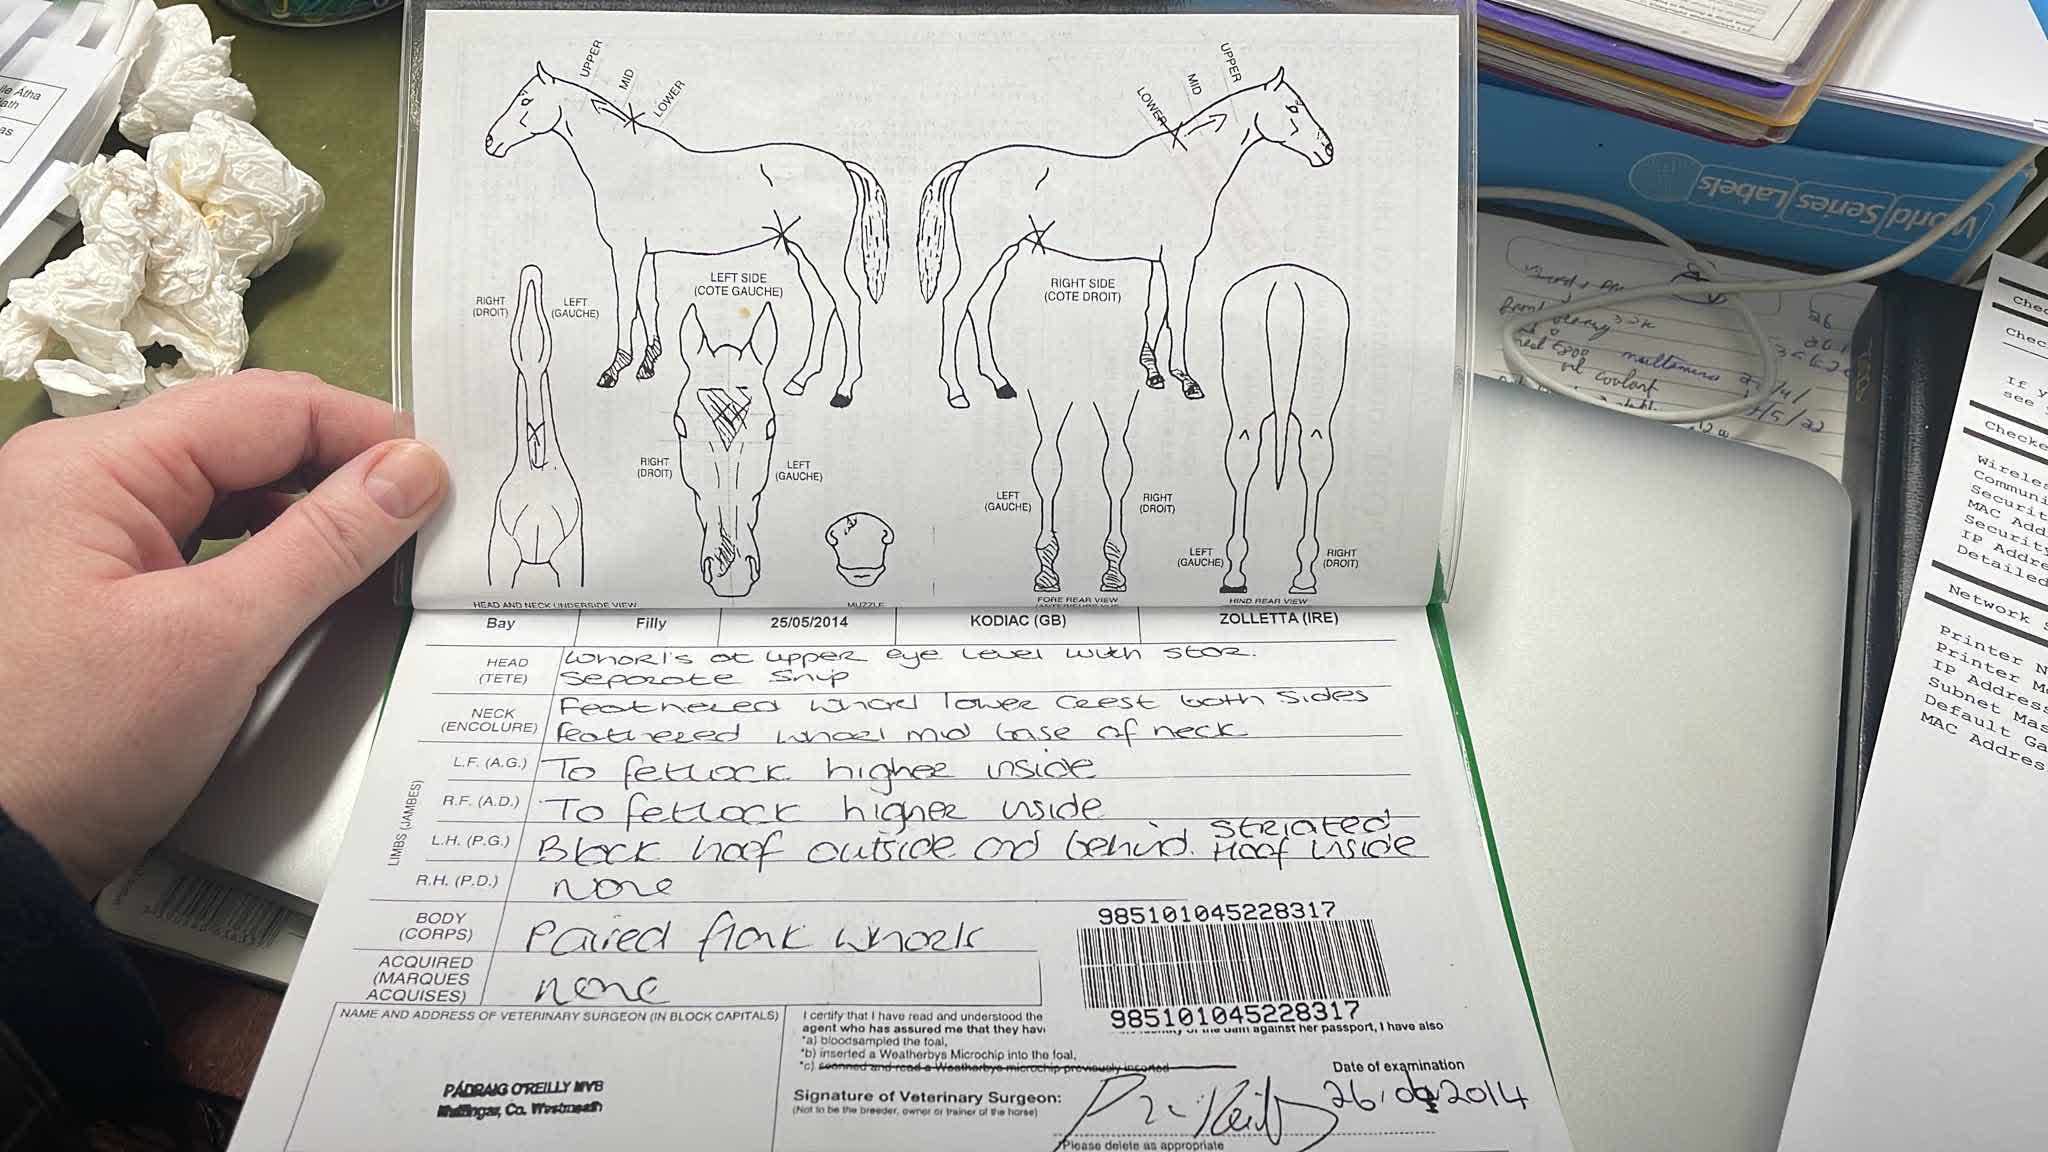 UPPER
MID
LOWER
LOWER
MID
UPPER
LEFT SIDE
(COTE GAUCHE)
RIGHT SIDE
(COTE DROIT)
RIGHT
(DROIT)
LEFT
(GAUCHE)
RIGHT
(DROIT)
LEFT
(GAUCHE)
LEFT
(GAUCHE)
RIGHT
(DROIT)
LEFT
(GAUCHE)
RIGHT
(DROIT)
HEAD AND NECK UNDERSIDE VIEW
MUZZLE
FORE REAR VIEW
HIND REAR VIEW
Bay Filly 25/05/2014 KODIAC (GB) ZOLLETTA (IRE)
HEAD
(TETE)
Whorls at upper eye level with star.
Separate Snip
NECK
(ENCOLURE)
Feathered whorl lower crest both sides
feathered whorl mid base of neck
LIMBS (JAMBES)
L.F. (A.G.) To fetlock higher inside
R.F. (A.D.) To fetlock higher inside
L.H. (P.G.) Black hoof outside and behind. striated Hoof inside
R.H. (P.D.) none
BODY
(CORPS)
Paired flank whorls
ACQUIRED
(MARQUES
ACQUISES)
none
985101045228317
985101045228317
NAME AND ADDRESS OF VETERINARY SURGEON (IN BLOCK CAPITALS)
PÁDRAIG O'REILLY MVB
Mullingar, Co. Westmeath
I certify that I have read and understood the
agent who has assured me that they have
identity of the dam against her passport, I have also
*a) bloodsampled the foal,
*b) inserted a Weatherbys Microchip into the foal,
*c) scanned and read a Weatherbys microchip previously inserted
Signature of Veterinary Surgeon:
(Not to be the breeder, owner or trainer of the horse)
Date of examination
26.09 2014
Please delete as appropriate
World Series Labels
multimeters
oil coolant
If y
see
Checke
Wireles
Communi
Securit
MAC Add
Security
IP Addre
Detailed
Network S
Printer N
Printer Mo
IP Address
Subnet Mas
Default Ga
MAC Addres